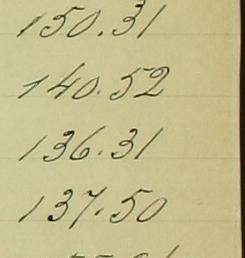 150.31
140.52
136.31
137.50